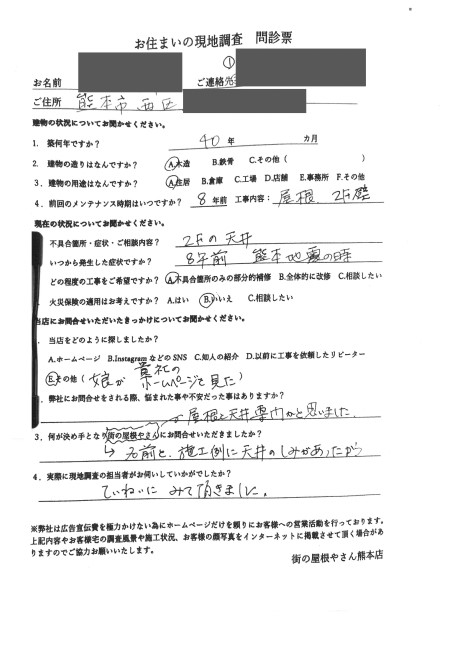 お住まいの現地調査 問診票
①
お名前 ご連絡先
ご住所 熊本市西区
建物の状況についてお聞かせください。
1. 築何年ですか? 40年 カ月
2. 建物の造りはなんですか? A.木造 B.鉄骨 C.その他( )
3. 建物の用途はなんですか? A.住居 B.倉庫 C.工場 D.店舗 E.事務所 F.その他
4. 前回のメンテナンス時期はいつですか? 8年前 工事内容: 屋根、2F壁
現在の状況についてお聞かせください。
不具合箇所・症状・ご相談内容? 2Fの天井
いつから発生した症状ですか? 8年前 熊本地震の時
どの程度の工事をご希望ですか? A.不具合箇所のみの部分的補修 B.全体的に改修 C.相談したい
火災保険の適用はお考えですか? A.はい B.いいえ C.相談したい
当店にお問合せいただいたきっかけについてお聞かせください。
. 当店をどのように探しましたか?
A.ホームページ B.InstagramなどのSNS C.知人の紹介 D.以前に工事を依頼したリピーター
E.その他(娘が貴社のホームページで見た)
. 弊社にお問合せをされる際、悩まれた事や不安だった事はありますか?
屋根と天井専門かと思いました。
3. 何が決め手となり街の屋根やさんにお問合せいただきましたか?
→ 名前と、施工例に天井のしみがあったから
4. 実際に現地調査の担当者がお伺いしていかがでしたか?
ていねいにみて頂きました。
※弊社は広告宣伝費を極力かけない為にホームページだけを頼りにお客様への営業活動を行っております。
上記内容やお客様宅の調査風景や施工状況、お客様の顔写真をインターネットに掲載させて頂く場合があ
りますのでご協力お願いします。
街の屋根やさん熊本店